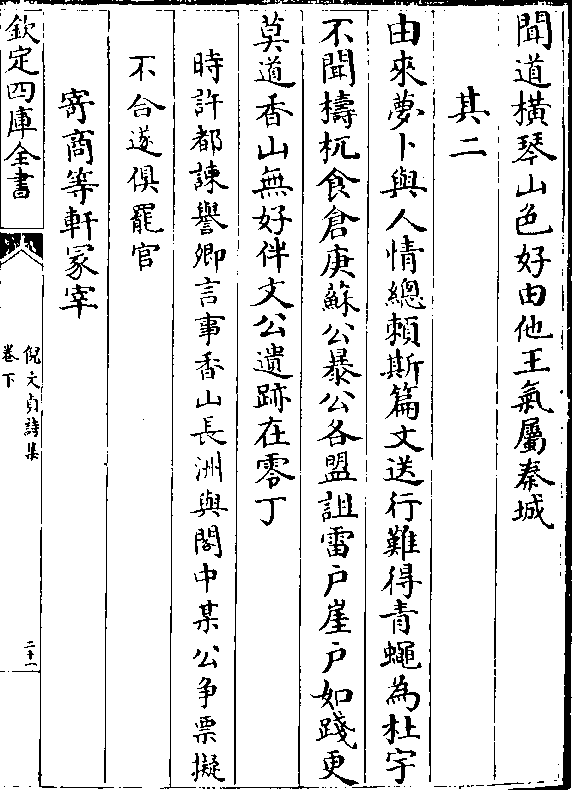 聞道橫琴山色好由他王氣屬秦城
其二
由來夢卜與人情總頼斯篇文送行難得青蠅為杜宇
不聞檮杌食倉庚蘇公暴公各盟詛雷戸崖戸如踐更
莫道香山無好伴文公遺跡在零丁
時許都諫譽卿言事香山長洲與閣中某公争票擬
不合遂俱罷官
寄商等軒冢宰
欽定四庫全書
倪文貞詩集
卷下
二十一